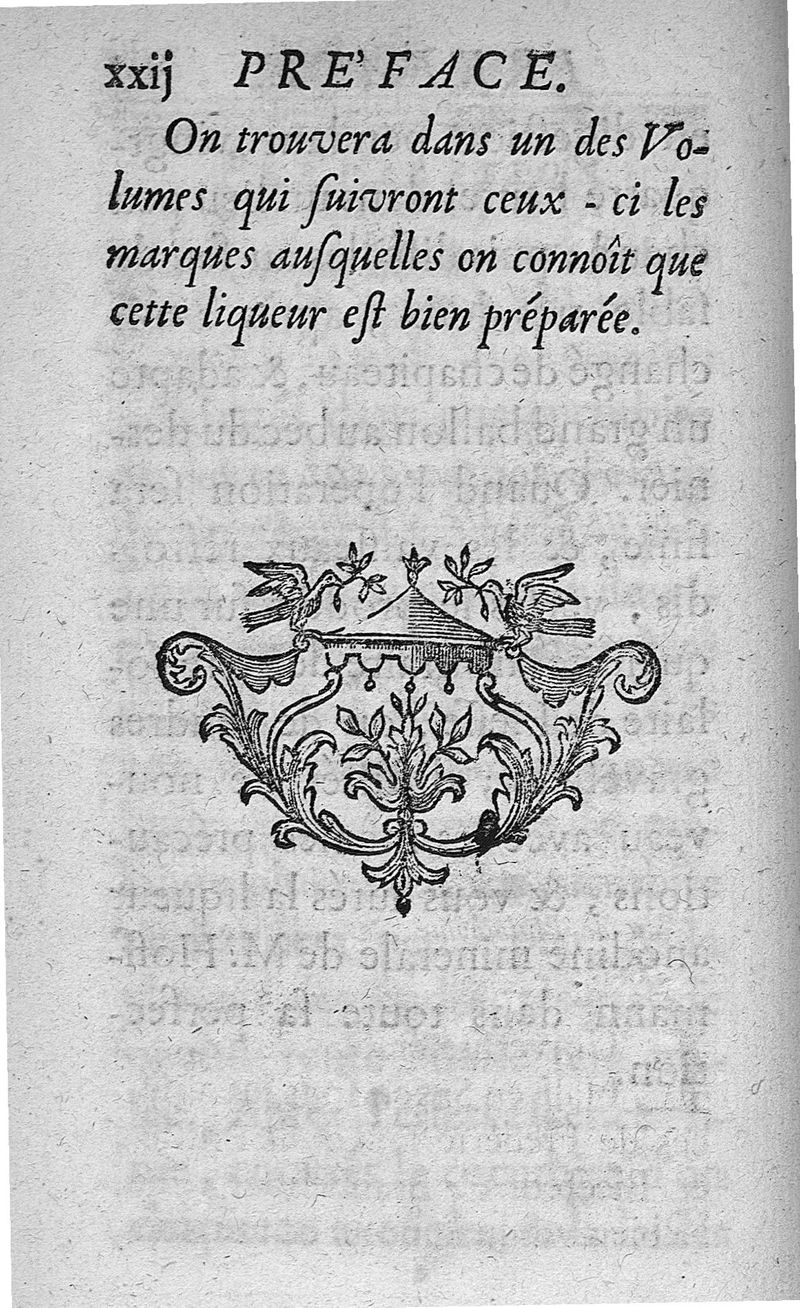 xxij PRE'FACE.
On trouvera dans un des Vo-
lumes qui ſuivront ceux - ci les
marques auſquelles on connoît que
cette liqueur eſt bien préparée.